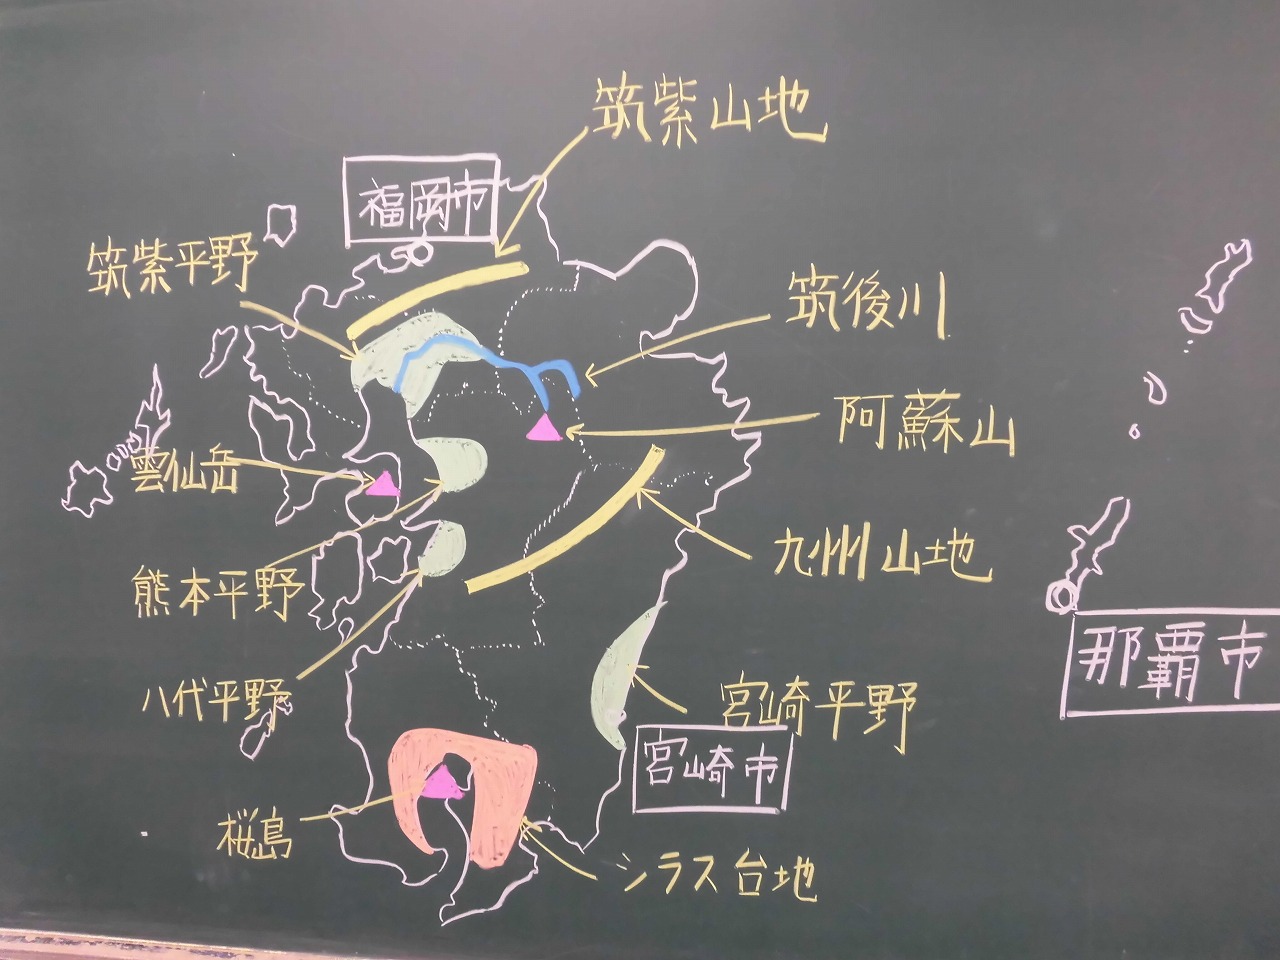 筑紫山地
福岡市
筑紫平野
筑後川
阿蘇山
雲仙岳
九州山地
熊本平野
那覇市
八代平野
宮崎平野
宮崎市
桜島
シラス台地